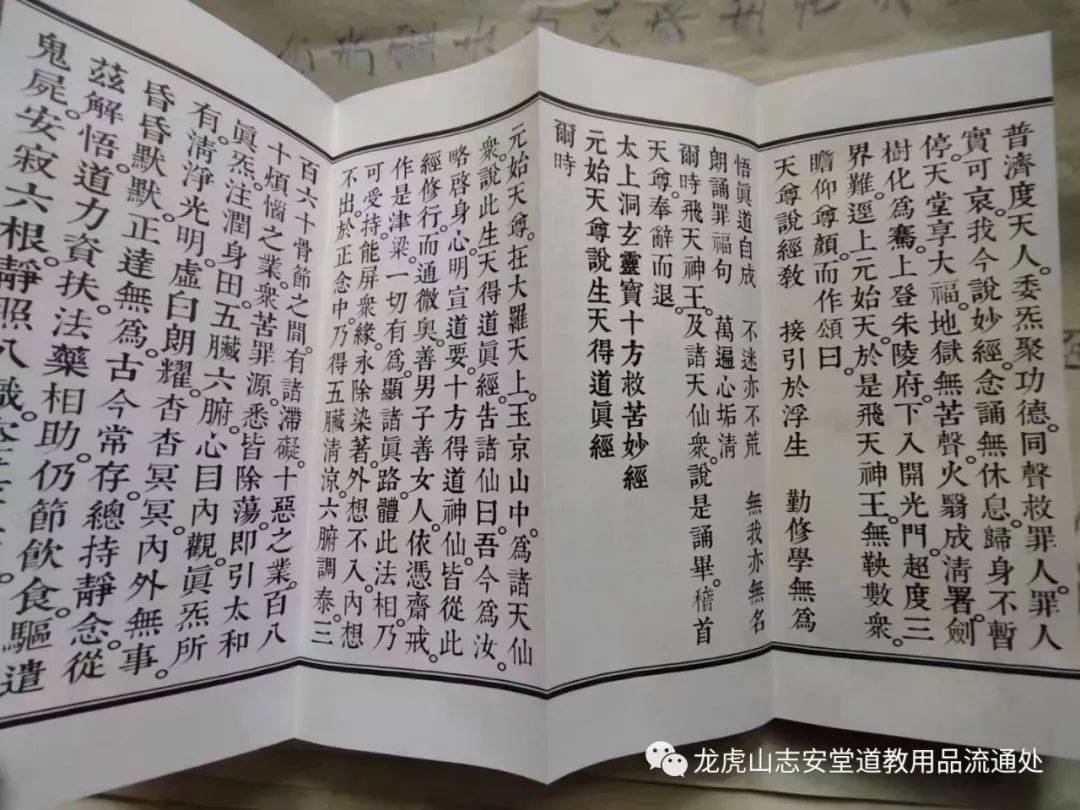 普濟度天人。委炁聚功德。同聲救罪人。罪人
實可哀。我今說妙經。念誦無休息。歸身不暫
停。天堂享大福。地獄無苦聲。火翳成清署。劍
樹化爲騫。上登朱陵府。下入開光門。超度三
界難。逕上元始天。於是飛天神王。無鞅數衆。
瞻仰尊顏。而作頌曰。
天尊說經教 接引於浮生 勤修學無爲
悟眞道自成 不迷亦不荒 無我亦無名
朗誦罪福句 萬遍心垢清
爾時飛天神王。及諸天仙衆。說是誦畢。稽首
天尊。奉辭而退。
太上洞玄靈寶十方救苦妙經
元始天尊說生天得道眞經
爾時
元始天尊。在大羅天上。玉京山中。爲諸天仙
衆。說此生天得道眞經。告諸仙曰。吾今爲汝。
略啓身心。明宣道要。十方得道神仙。皆從此
經修行。而通微奧。善男子善女人。依憑齋戒。
作是津梁。一切有爲。顯諸眞路。體此法相。乃
可受持。能屏衆緣。永除染著。外想不入。內想
不出。於正念中。乃得五臟清涼。六腑調泰。三
百六十骨節之間。有諸滯礙。十惡之業。百八
十煩惱之業。衆苦罪源。悉皆除蕩。即引太和
眞炁。注潤身田。五臟六腑。心目內觀。眞炁所
有。清淨光明。虛白朗耀。杳杳冥冥。內外無事。
昏昏默默。正達無爲。古今常存。總持靜念。從
茲解悟。道力資扶。法藥相助。仍節飲食。驅遣
鬼屍。安寂六根。靜照八識。
龙虎山志安堂道教用品流通处